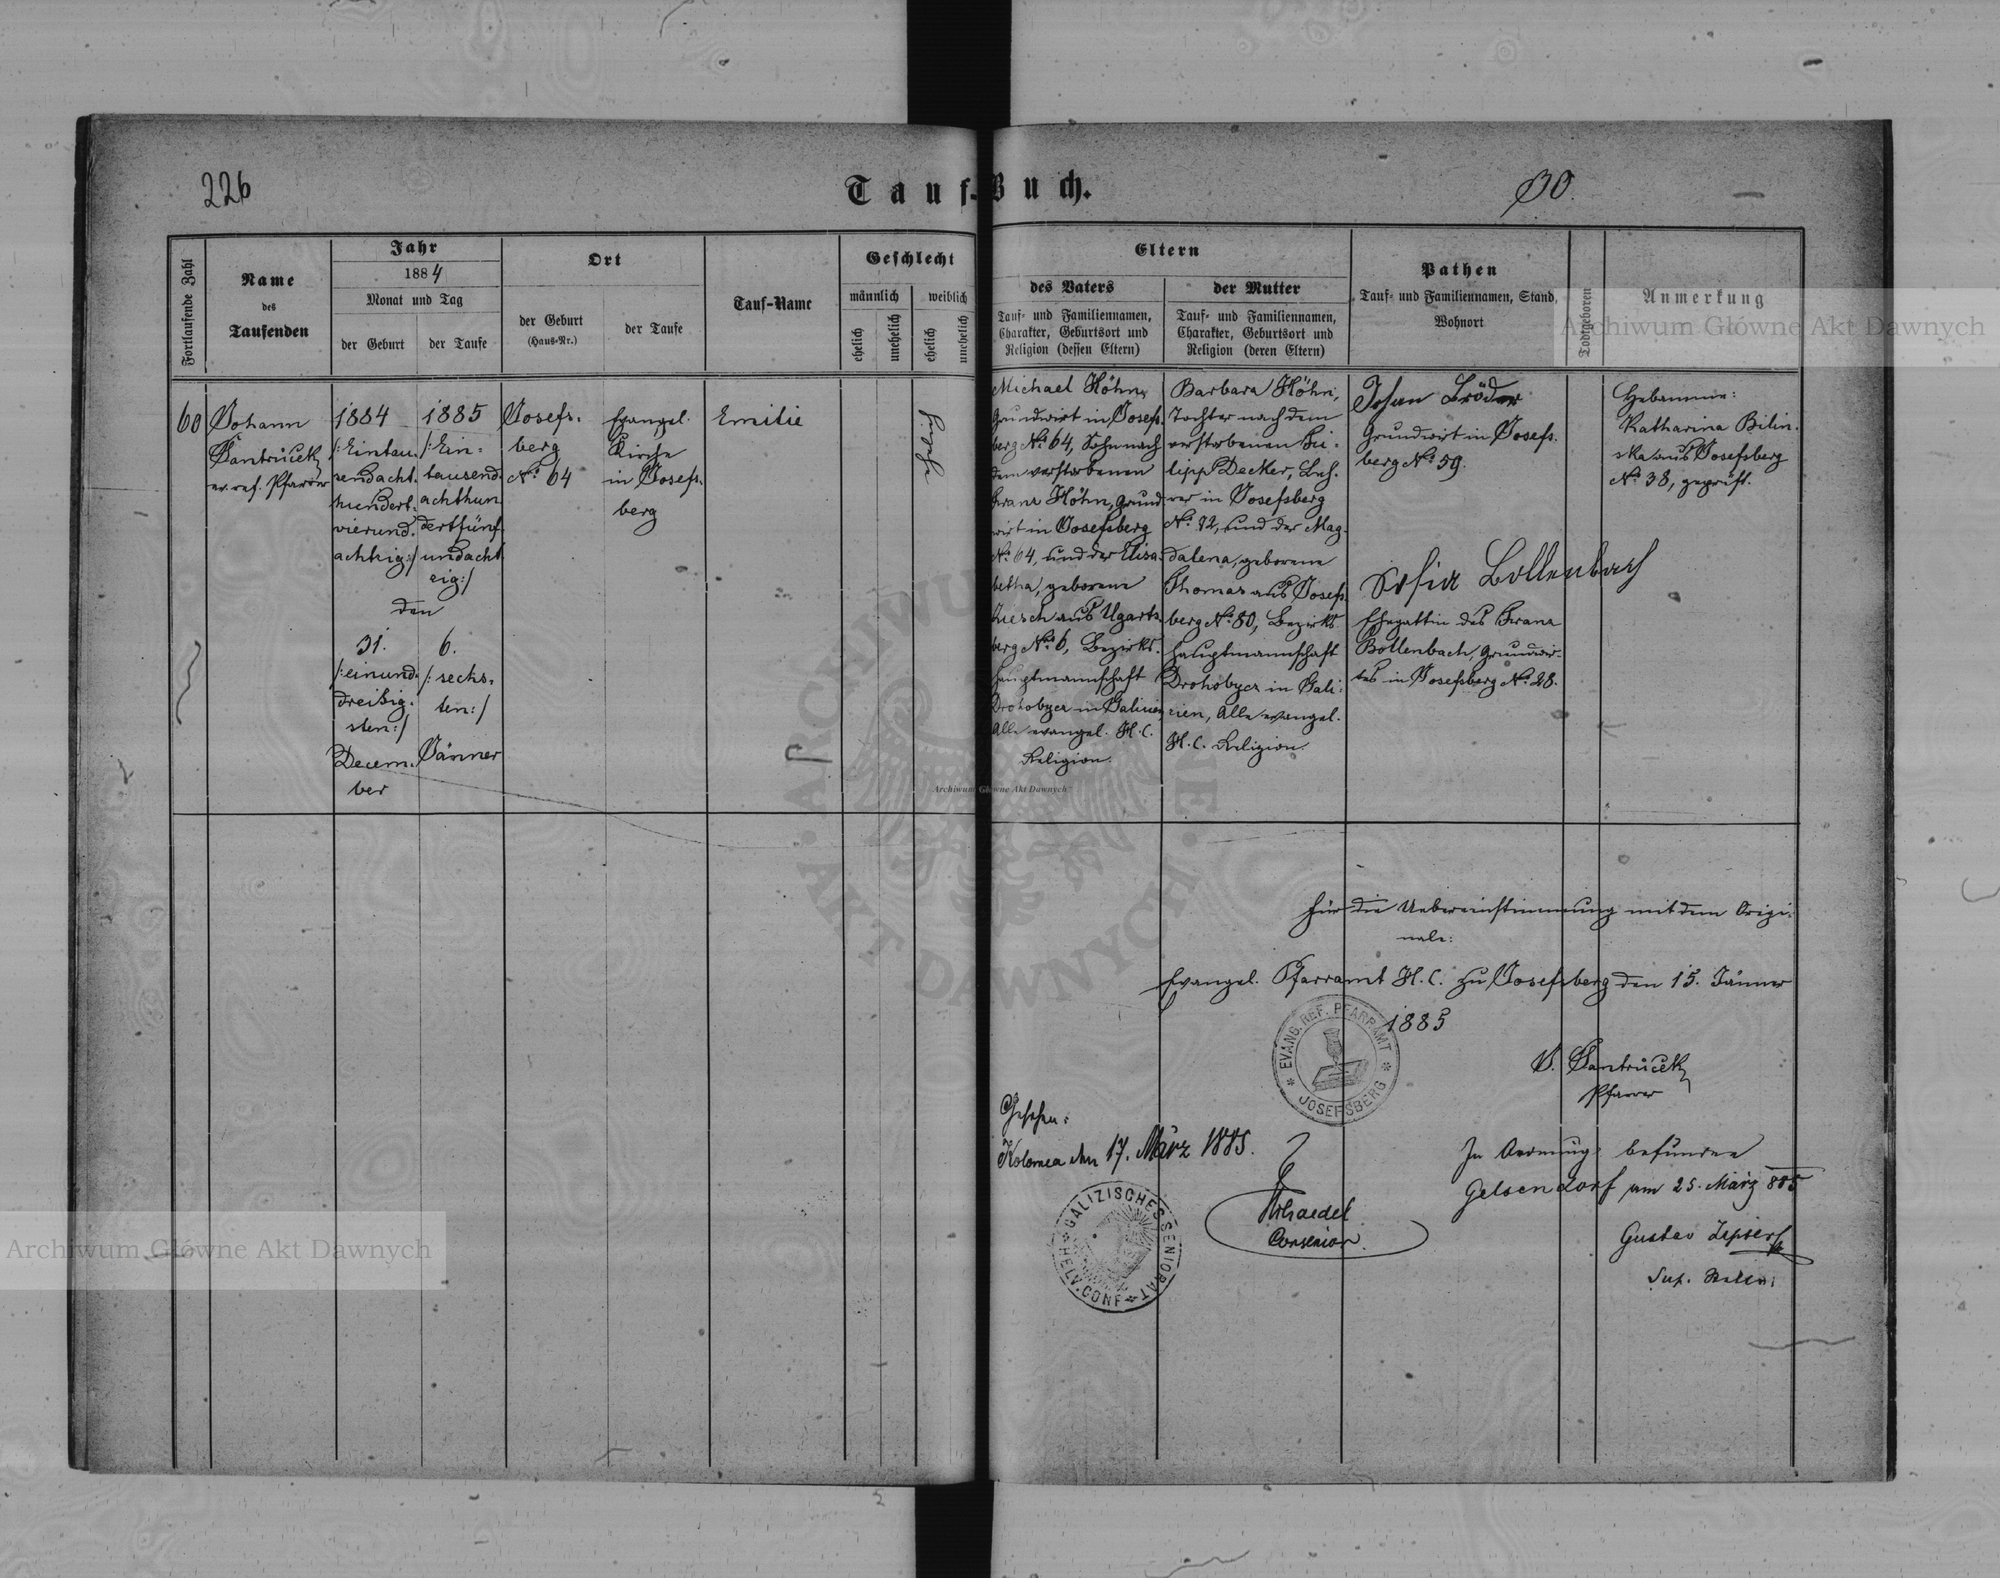 226
Tauf-Buch.
30.
Fortlaufende Zahl
Name
des
Taufenden
Jahr
1884
Monat und Tag
der Geburt
der Taufe
Ort
der Geburt
(Haus-Nr.)
der Taufe
Tauf-Name
Geschlecht
männlich
weiblich
ehelich
unehelich
ehelich
unehelich
Eltern
des Vaters
Tauf- und Familiennamen,
Charakter, Geburtsort und
Religion (dessen Eltern)
der Mutter
Tauf- und Familiennamen,
Charakter, Geburtsort und
Religion (deren Eltern)
Pathen
Tauf- und Familiennamen, Stand,
Wohnort
Todtgeboren
Anmerkung
Archiwum Główne Akt Dawnych
60
Johann
Jantrůček
ev. ref. Pfarrer
1884
/:Eintau-
sendacht-
hundert-
vierund-
achtzig:/
den
31.
/:einund-
dreißig-
sten:/
Decem-
ber
1885
/:Ein-
tausend-
achthun
dertfünf-
undacht
zig:/
6.
/:sechs-
ten:/
Jänner
Josefs-
berg
No. 64
Evangel.
Kirche
in Josefs-
berg
Emilie
ehelich
Michael Höhn,
Grundwirt in Josefs-
berg No. 64, Sohn nach
dem verstorbenen
Franz Höhn, Grund-
wirt in Josefsberg
No. 64, und der Elisa-
betha, geborene
aus Ugarts-
berg No. 6, Bezirks-
hauptmannschaft
Drohobycz in Galizien,
Alle evangel. H. C.
Religion.
Barbara Höhn,
Tochter nach dem
verstorbenen Fi-
lipp Decker, Leh-
rer in Josefsberg
No. 72, und der Mag-
dalena, geborene
Thomas aus Josefs-
berg No. 80, Bezirks-
hauptmannschaft
Drohobycz in Gali-
zien, Alle evangel.
H. C. Religion.
Johan Bröder
Grundwirt in Josefs-
berg No. 59.
Sofia Bollenbach
Ehegattin des Franz
Bollenbach, Grundwir-
tes in Josefsberg No. 28.
Hebamme:
Katharina Bilin-
ska aus Josefsberg
No. 38, geprüft.
ARCHIWUM GŁÓWNE
AKT DAWNYCH
Archiwum Główne Akt Dawnych
Für die Uebereinstimmung mit dem Origi-
nale:
Evangel. Pfarramt H. C. zu Josefsberg den 15. Jänner
1885
EVANG. REF. PFARRAMT
JOSEFSBERG
J. Jantrůček
Pfarrer
Gesehen:
Kolomea den 17. März 1885.
GALIZISCHES SENIORAT
HELV. CONF
Consenior.
In Ordnung befunden
Gelsendorf am 25. März 885
Gustav
Archiwum Główne Akt Dawnych